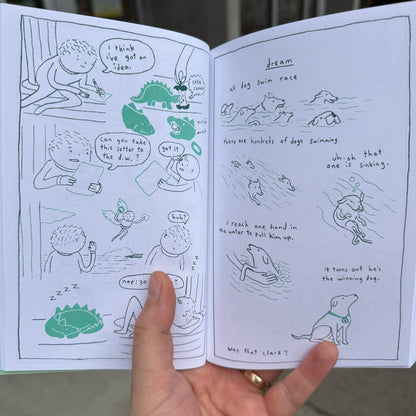 I think
i've got an
idea.
little
snores
munch
munch
Can you take
this letter to
the d.w.?
got it
huh?
zzzz
zzzz
nap:30
dream
all dog swim race
there are hundreds of dogs swimming
uh-oh that
one is sinking.
I reach one hand in
the water to pull him up.
It turns out he's
the winning dog.
Was that clark?